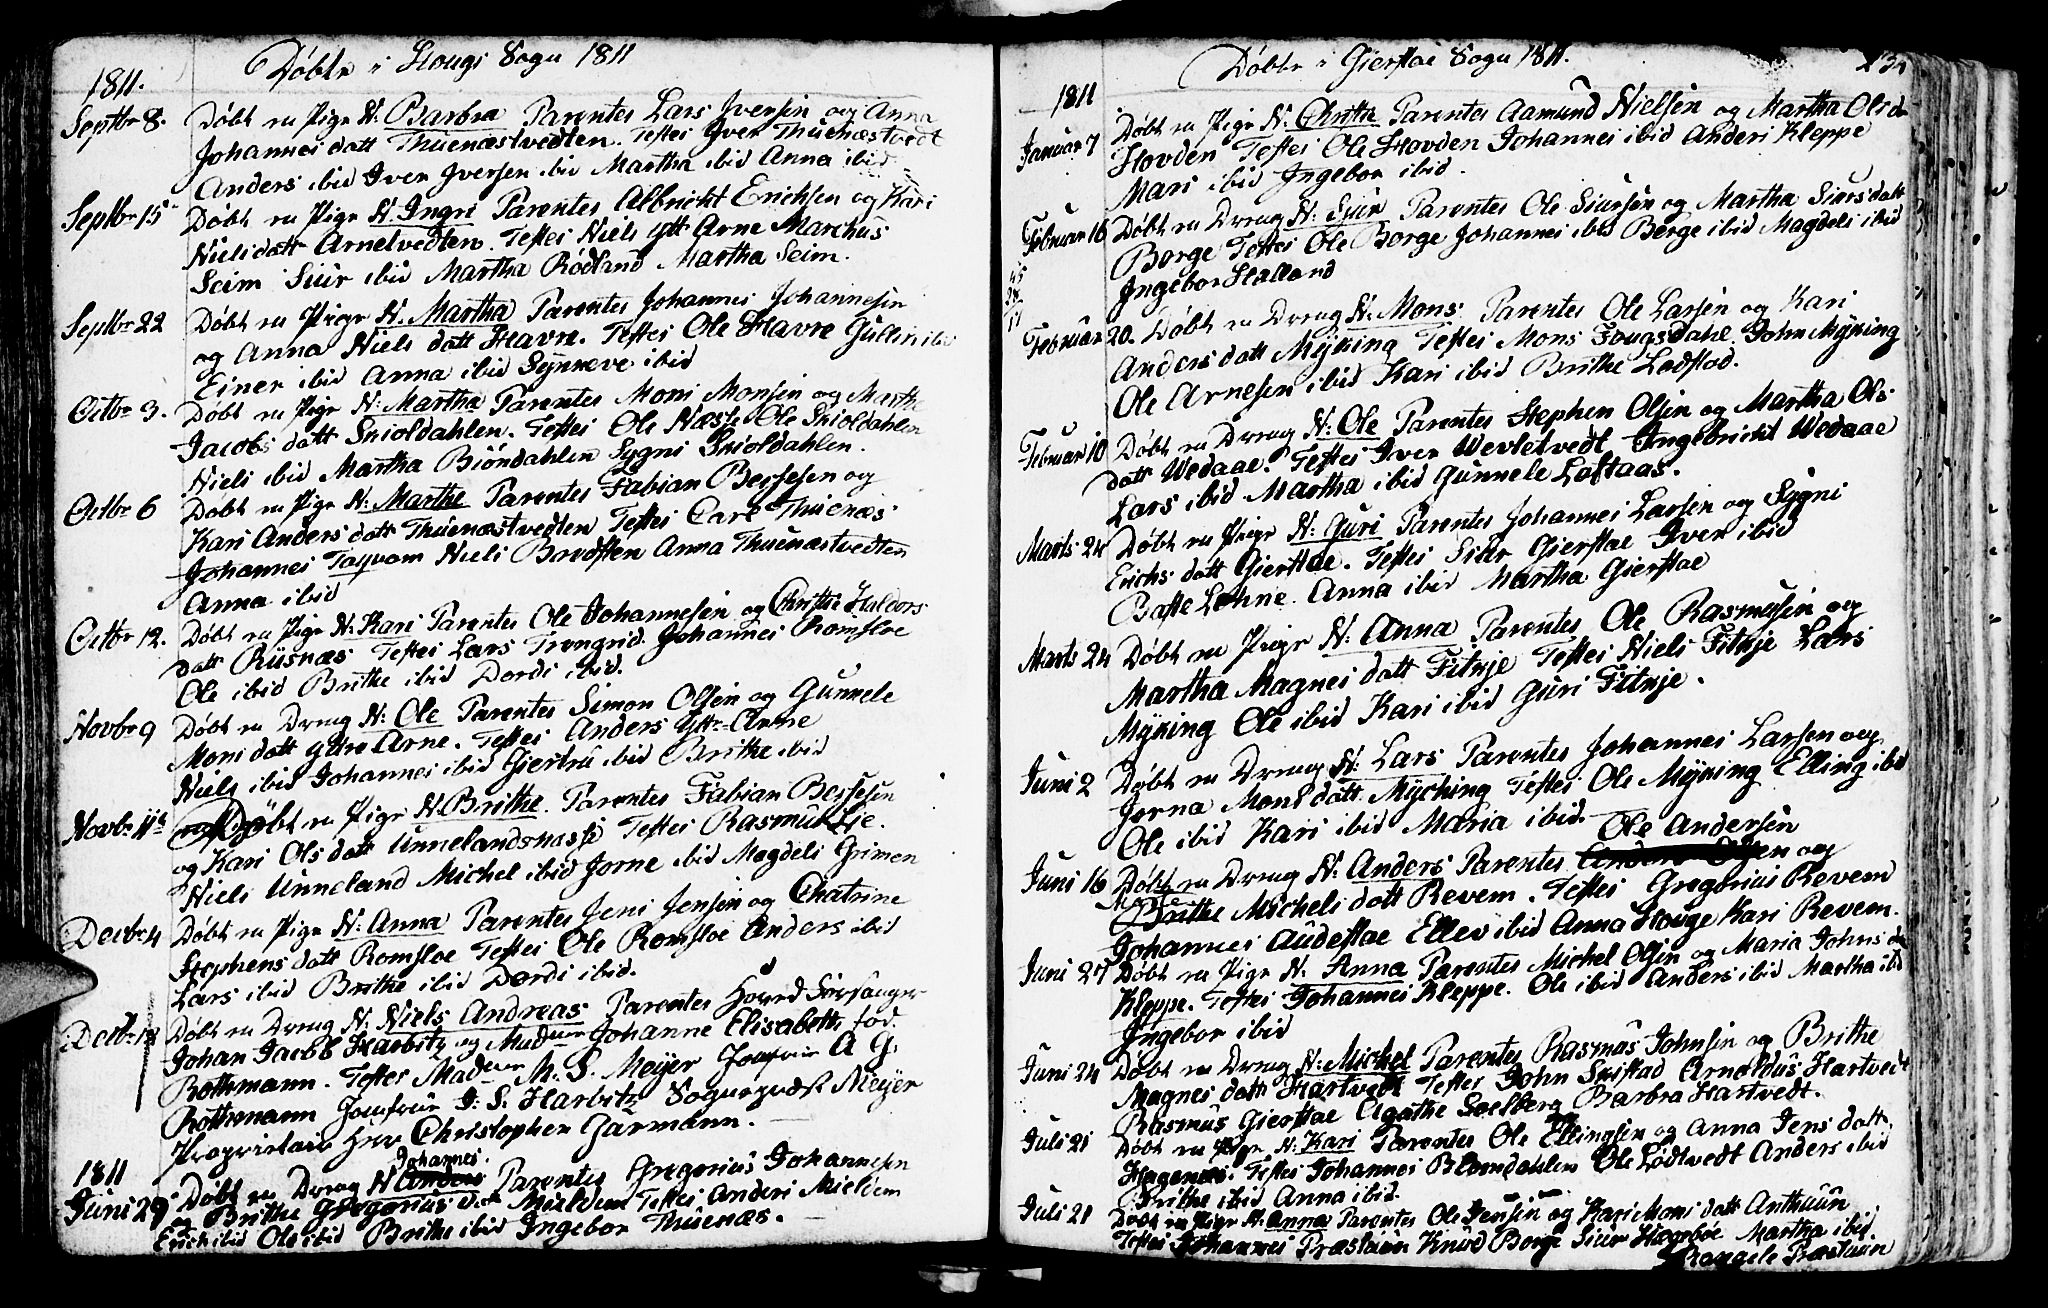 Døbte i Hougs Sogn 1811
1811.
Septbr 8. Døbt en Pige N: Barbra Parentes Lars Iversen og Anna
Johannes datt Thuenæstvedten. Testes Iver Thuenæstvedt
Anders ibid Iver Iversen ibid Martha ibid Anna ibid
Septbr 15 Døbt en Pige N: Ingri Parentes Albricht Erichsen og Kari
Niels datt Arnetvedten. Testes Niels ytt Arne Marchus
Seim Siur ibid Martha Rødland Martha Seim.
Septbr 22 Døbt en Pige N: Martha Parentes Johannes Johannesen
og Anna Niels datt Havre. Testes Ole Havre Gullin ibid
Einer ibid Anna ibid Synneve ibid
Octbr 3. Døbt en Pige N: Martha Parentes Mons Monsen og Marthe
Jacobs datt Skioldahlen. Testes Ole Næste Ole Skioldahlen
Niels ibid Martha Biöndahlen Sygni Skioldahlen.
Octbr 6 Døbt en Pige N: Marthe Parentes Fabian Bersesen og
Kari Anders datt Thuenæstvedten Testes Carl Thuenæs
Johannes Tagvam Niels Bredsten Anna Thuenæstvedten
Anna ibid
Octbr 12. Døbt en Pige N: Kari Parentes Ole Johannesen og Christie Haldors
datt Riisnæs Testes Lars Trengrid Johannes Romsloe
Ole ibid Brithe ibid Dordi ibid.
Novbr 9 Døbt en Dreng N: Ole Parentes Simon Olsen og Gunnele
Mons datt Yttre Arne. Testes Anders Yttr Arne
Niels ibid Johannes ibid Giertru ibid Brithe ibid
Novbr 11 Døbt en Pige N Brithe. Parentes Fabian Bersesen
og Kari Ols datt Unnelandsnasse Testes Rasmus
Niels Unneland Michel ibid Jorne ibid Magdeli Grimen
Decbr 4 Døbt en Pige N: Anna Parentes Jens Jensen og Chatrine
Stephens datt Romsloe Testes Ole Romsloe Anders ibid
Lars ibid Brithe ibid Dordi ibid.
Decbr Døbt en Dreng N: Niels Andreas Parentes Forsanger
Johan Jacob Harbitz og Madme Johanne Elisabeth fød.
Rothmann. Testes Madme M. S. Meyer Jomfrue A G.
Rothmann Jomfrue J. S. Harbitz Sognepræst Meyer
Proprietair Herr Christopher Garmann.
1811
Johannes
Juni 29 Døbt en Dreng N Anders Parentes Gregorius Johannesen
og Brithe Gregorius d. Mieldem Testes Anders Mieldem
Erich ibid Ole ibid Brithe ibid Ingebor Thuenæs.
Døbte i Gierstae Sogn 1811.
1811
Januar 7 Døbt en Pige N: Christie Parentes Aamund Nielsen og Martha Ols d
Hovden Testes Ole Hovden Johannes ibid Anders Kleppe
Mari ibid Ingebor ibid.
Februar 16 Døbt en Dreng N: Siur Parentes Ole Siursen og Martha Siurs datt
Borge Testes Ole Borge Johannes ibid Borge ibid Magdeli ibid
Ingebor Hatland
45
28
17
Februar 20. Døbt en Dreng N: Mons Parentes Ole Larsen og Kari
Anders datt Myking Testes Mons Fougsdahl John Myking
Ole Arnesen ibid Kari ibid Brithe Lodstod.
Februar 10 Døbt en Dreng N: Ole Parentes Stephen Olsen og Martha Ols
datt Wedaae. Testes Iver Wevletvedt Ingebricht Wedaae
Lars ibid Martha ibid Gunnele Loftaas.
Marts 24 Døbt en Pige N: Guri Parentes Johannes Larsen og Sygni
Erichs datt Gierstae. Testes Siur Gierstae Iver ibid
Baste Lohne. Anna ibid Martha Gierstae
Marts 24 Døbt en Pige N: Anna Parentes Ole Rasmusen og
Martha Magnes datt Fitkje Testes Niels Fitkje Lars
Myking Ole ibid Kari ibid Guri Fitkje.
Juni 2 Døbt en Dreng N: Lars Parentes Johannes Larsen og
Jorna Mons datt Myching Testes Ole Myking Elling ibid
Ole ibid Kari ibid Maria ibid.
Ole Andersen
Juni 16 Døbt en Dreng N: Anders Parentes og
Brithe Michels datt Revem. Testes Gregorius Revem
Johannes Audestae Ellev ibid Anna Houge Kari Revem.
Juni 27 Døbt en Pige N: Anna Parentes Michel Olsen og Maria Johns d
Kleppe. Testes Johannes Kleppe. Ole ibid Anders ibid Martha ibid
Ingebor ibid
Juni 24 Døbt en Dreng N: Michel Parentes Rasmus Johnsen og Brithe
Magnes datt Hartvedt Testes John Skistad Arnoldus Hartvedt
Rasmus Gierstae Agathe Soelberg Barbra Hartvedt.
Juli 21 Døbt en Pige N: Kari Parentes Ole Ellingsen og Anna Jens datt
Hagenæs. Testes Johannes Blomdahlen Ole Lødtvedt Anders ibid
Brithe ibid Anna ibid.
Juli 21 Døbt en Pige N: Anna Parentes Ole Jensen og Kari Mons datt Anthuun
Testes Johannes Præstuun Knud Borge Siur Hægebøe Martha ibid.
Præstuun